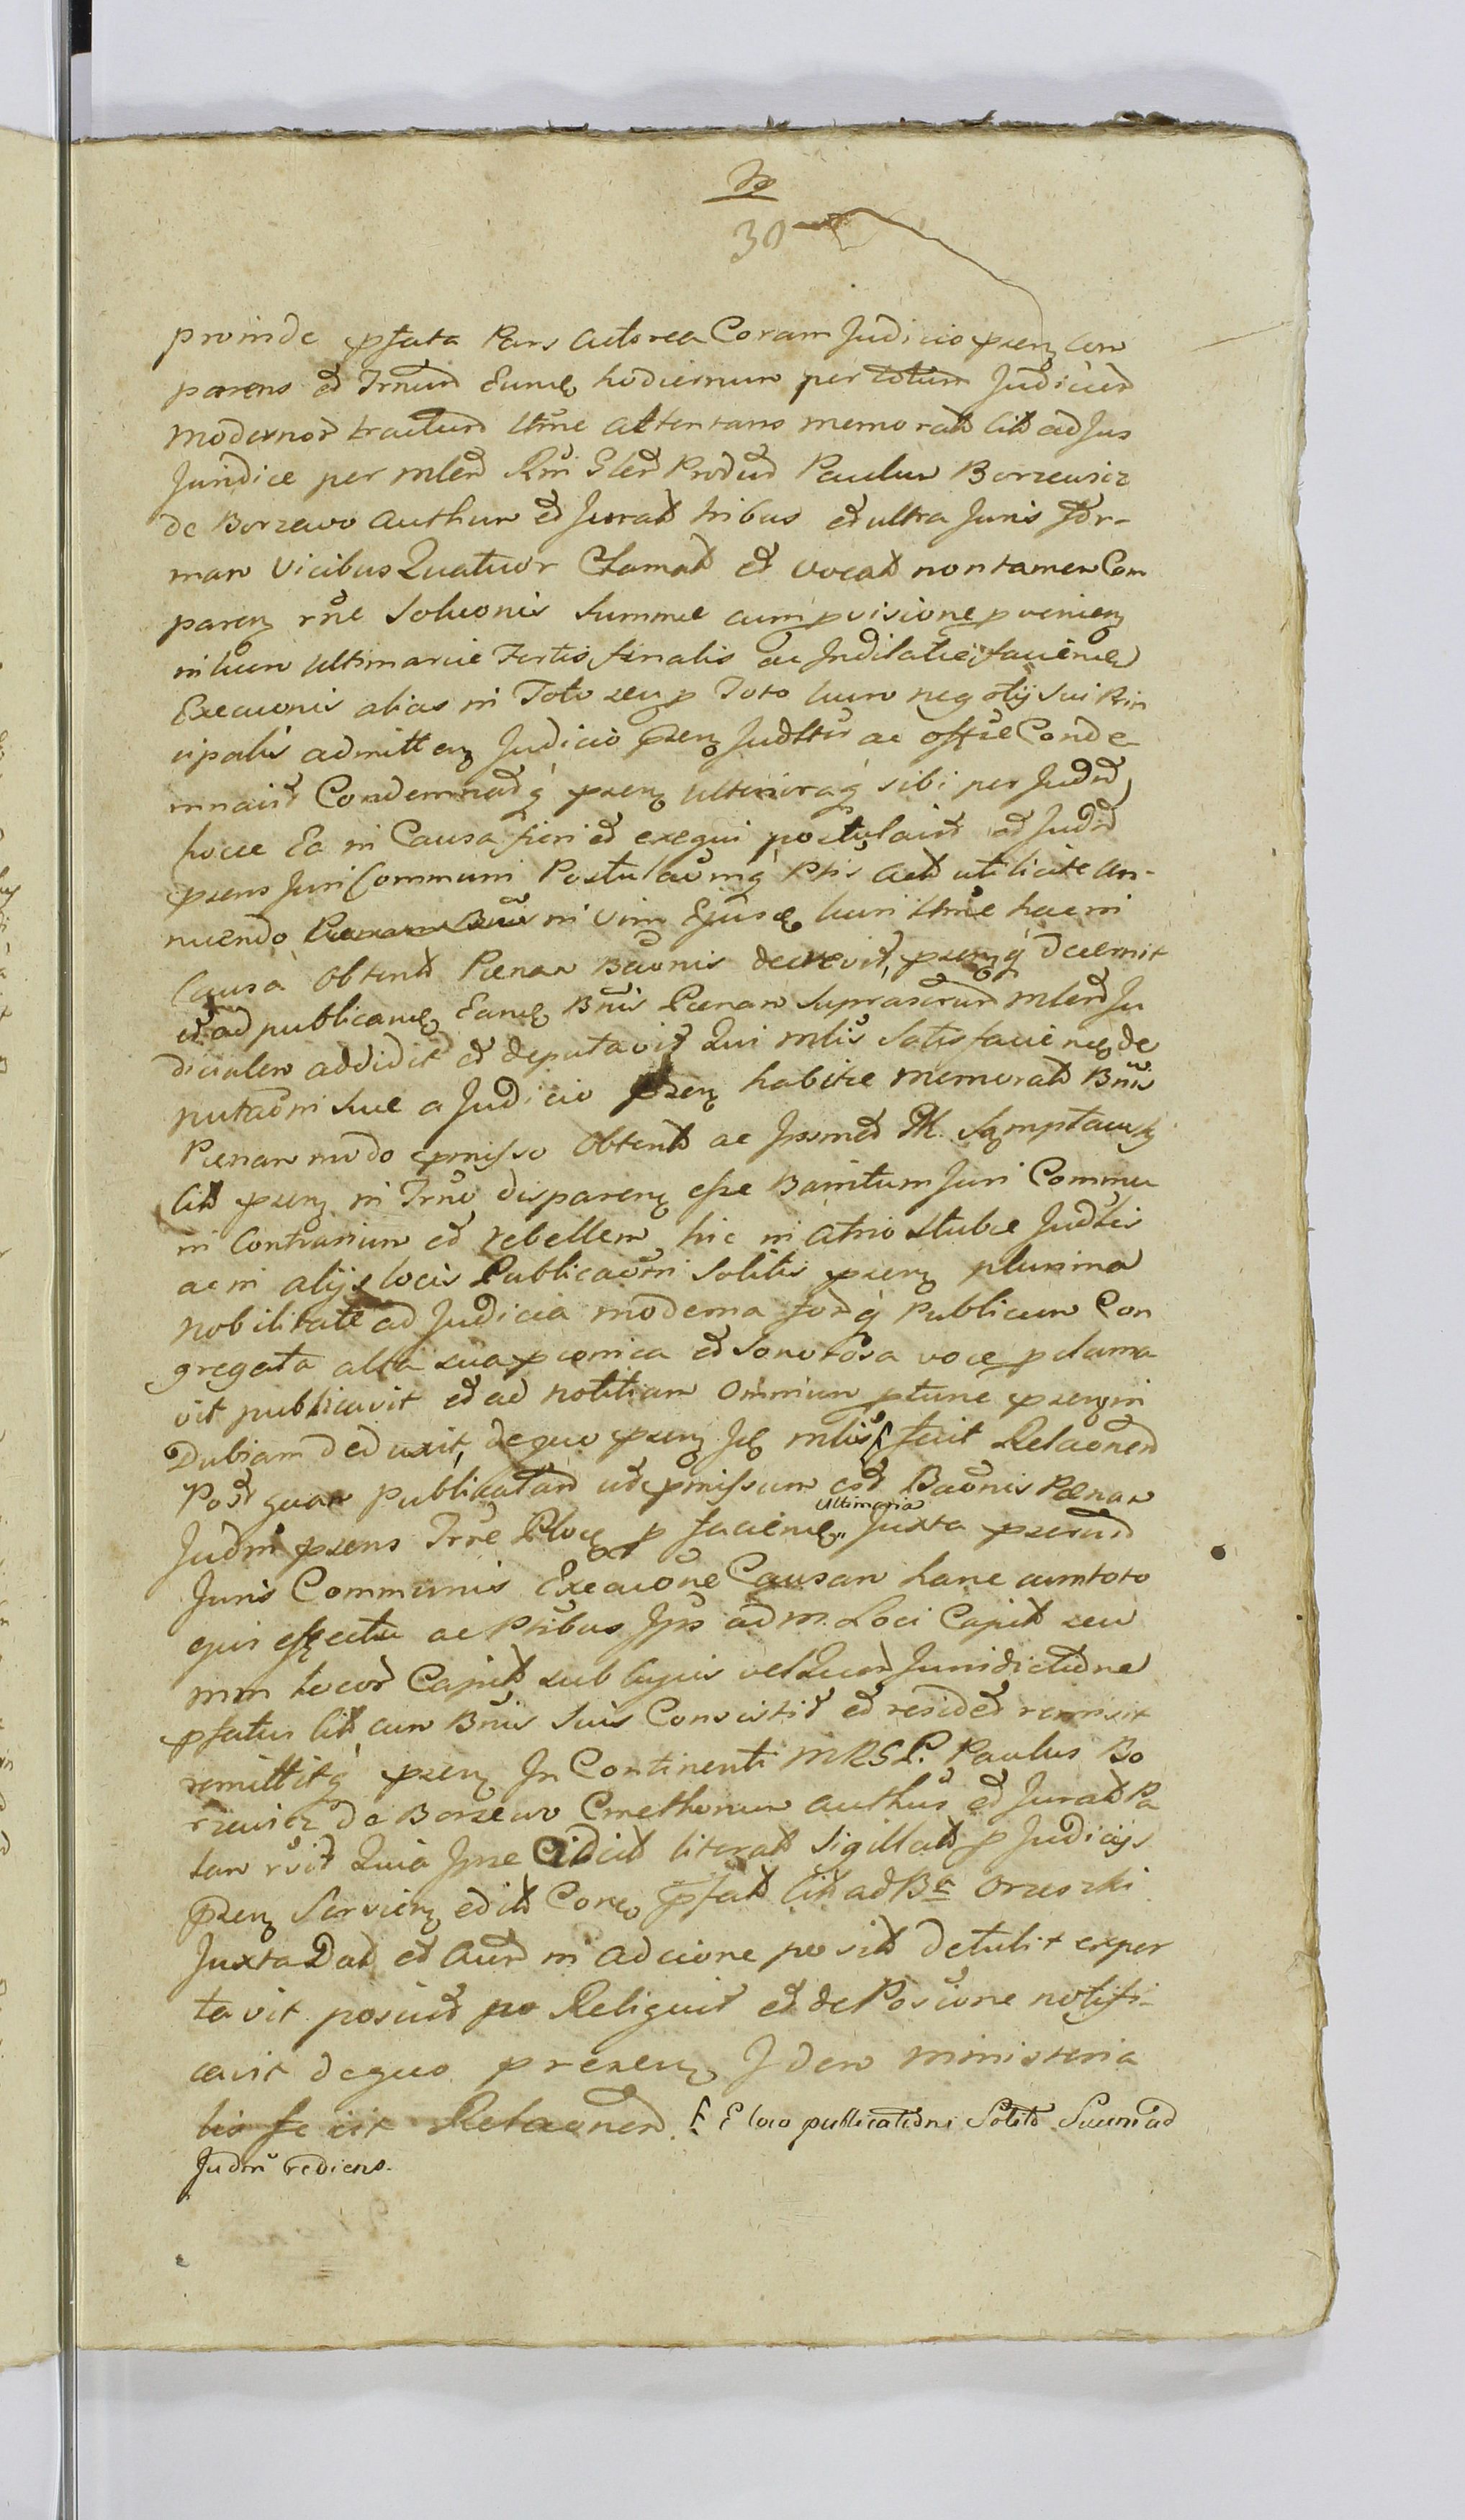 30
proinde pfata Pars Actorea Coram Judicio psenz Com
parens et Trnum Eumq hodiernum per totum Judicior
modernor tractum ltme attentans memorat Cit ad Jus
Juridice per mlem Rni Glem Produm Paulum Borzewicz
de Borzewo Authum et Jurat tribus et ultra Juris for-
mam vicibus Quatuor Clamat et vocat non tamen Com
parenz rne Soluonis Summe cum pvisione pvenienz
in lucro Ultimarie Tertis finalis ac Indilatte faciene
Execuonis alias in Toto seu p Toto lucro negotij sui Prin
cipalis admittenz Judicio psenz Judltr ac offise Conde
mnait Condemnatq psenz ulterioraq sibi per Judm
hocce Ea in Causa fieri et exequi postulait et Judm
psens Juri Communi Postulaoniq Ptis Act uti licite An-
nuendo in vim Ejusq lucri ltme hac in
Causa Obtent Pænam Baonis decrevit, psenzq decernit
et ad publicanq Eamq Bnis Pænam Suprascrum mlem Ju
dicialem addidit et deputavit Qui mlis Satisfacienq de
putaoni sue a Judicio psenz habite memorat Bnis
Pænam modo pmisso Obtent ac Ipsmet M. Sąmpławsky
Cit psenz in Trno disparenz esse Banitum Juri Commu
ni Contrarium et rebellem hic in Atrio Stubæ Judlis
ac in alijs locis Publicaoni Solitis psenz plurima
nobilitate ad Judicia moderna forq Publicum Con
gregata alta sua pconica et Sonorosa voce pclama
vit publicavit et ad notitiam Omnium ptune psenz in
Dubiam deduxit, de quo psenz Jq mlis ƒ fecit Relaonem
Post quam Publicatam ut pmissum est Baonis Pænam
Judm psens Trre Ploc p facienq Ultimaria Juxta pscrum
Juris Communis Execuone Causam hanc cum toto
ejus effectu ac Ptibus Jps ad m. Loci Capit seu
mm locor Capit sub cujus vel Quor Jurisdictione
pfatus Cit cum Bnis Suis Consistit et residet remisit
remittitq psenz In Continenti MRSP. Paulus Bo
rzewicz de Borzewo Cmethonum Authus et Jurat Pa
lam rsit Quia Ipse Cidcit literat Sigillat p Judicijs
psenz Servienz edit Cone pfat Cit ad Ba Orzeszki
Juxta Dat et Aum in adcione posit detulit exper
tavit posuit po Reliquit et de Posiione notifi-
cavit de quo presenz Idem ministeria
lis fecit Relaonem. ƒ E loco publicationi Solito Suum ad
Judm rediens.